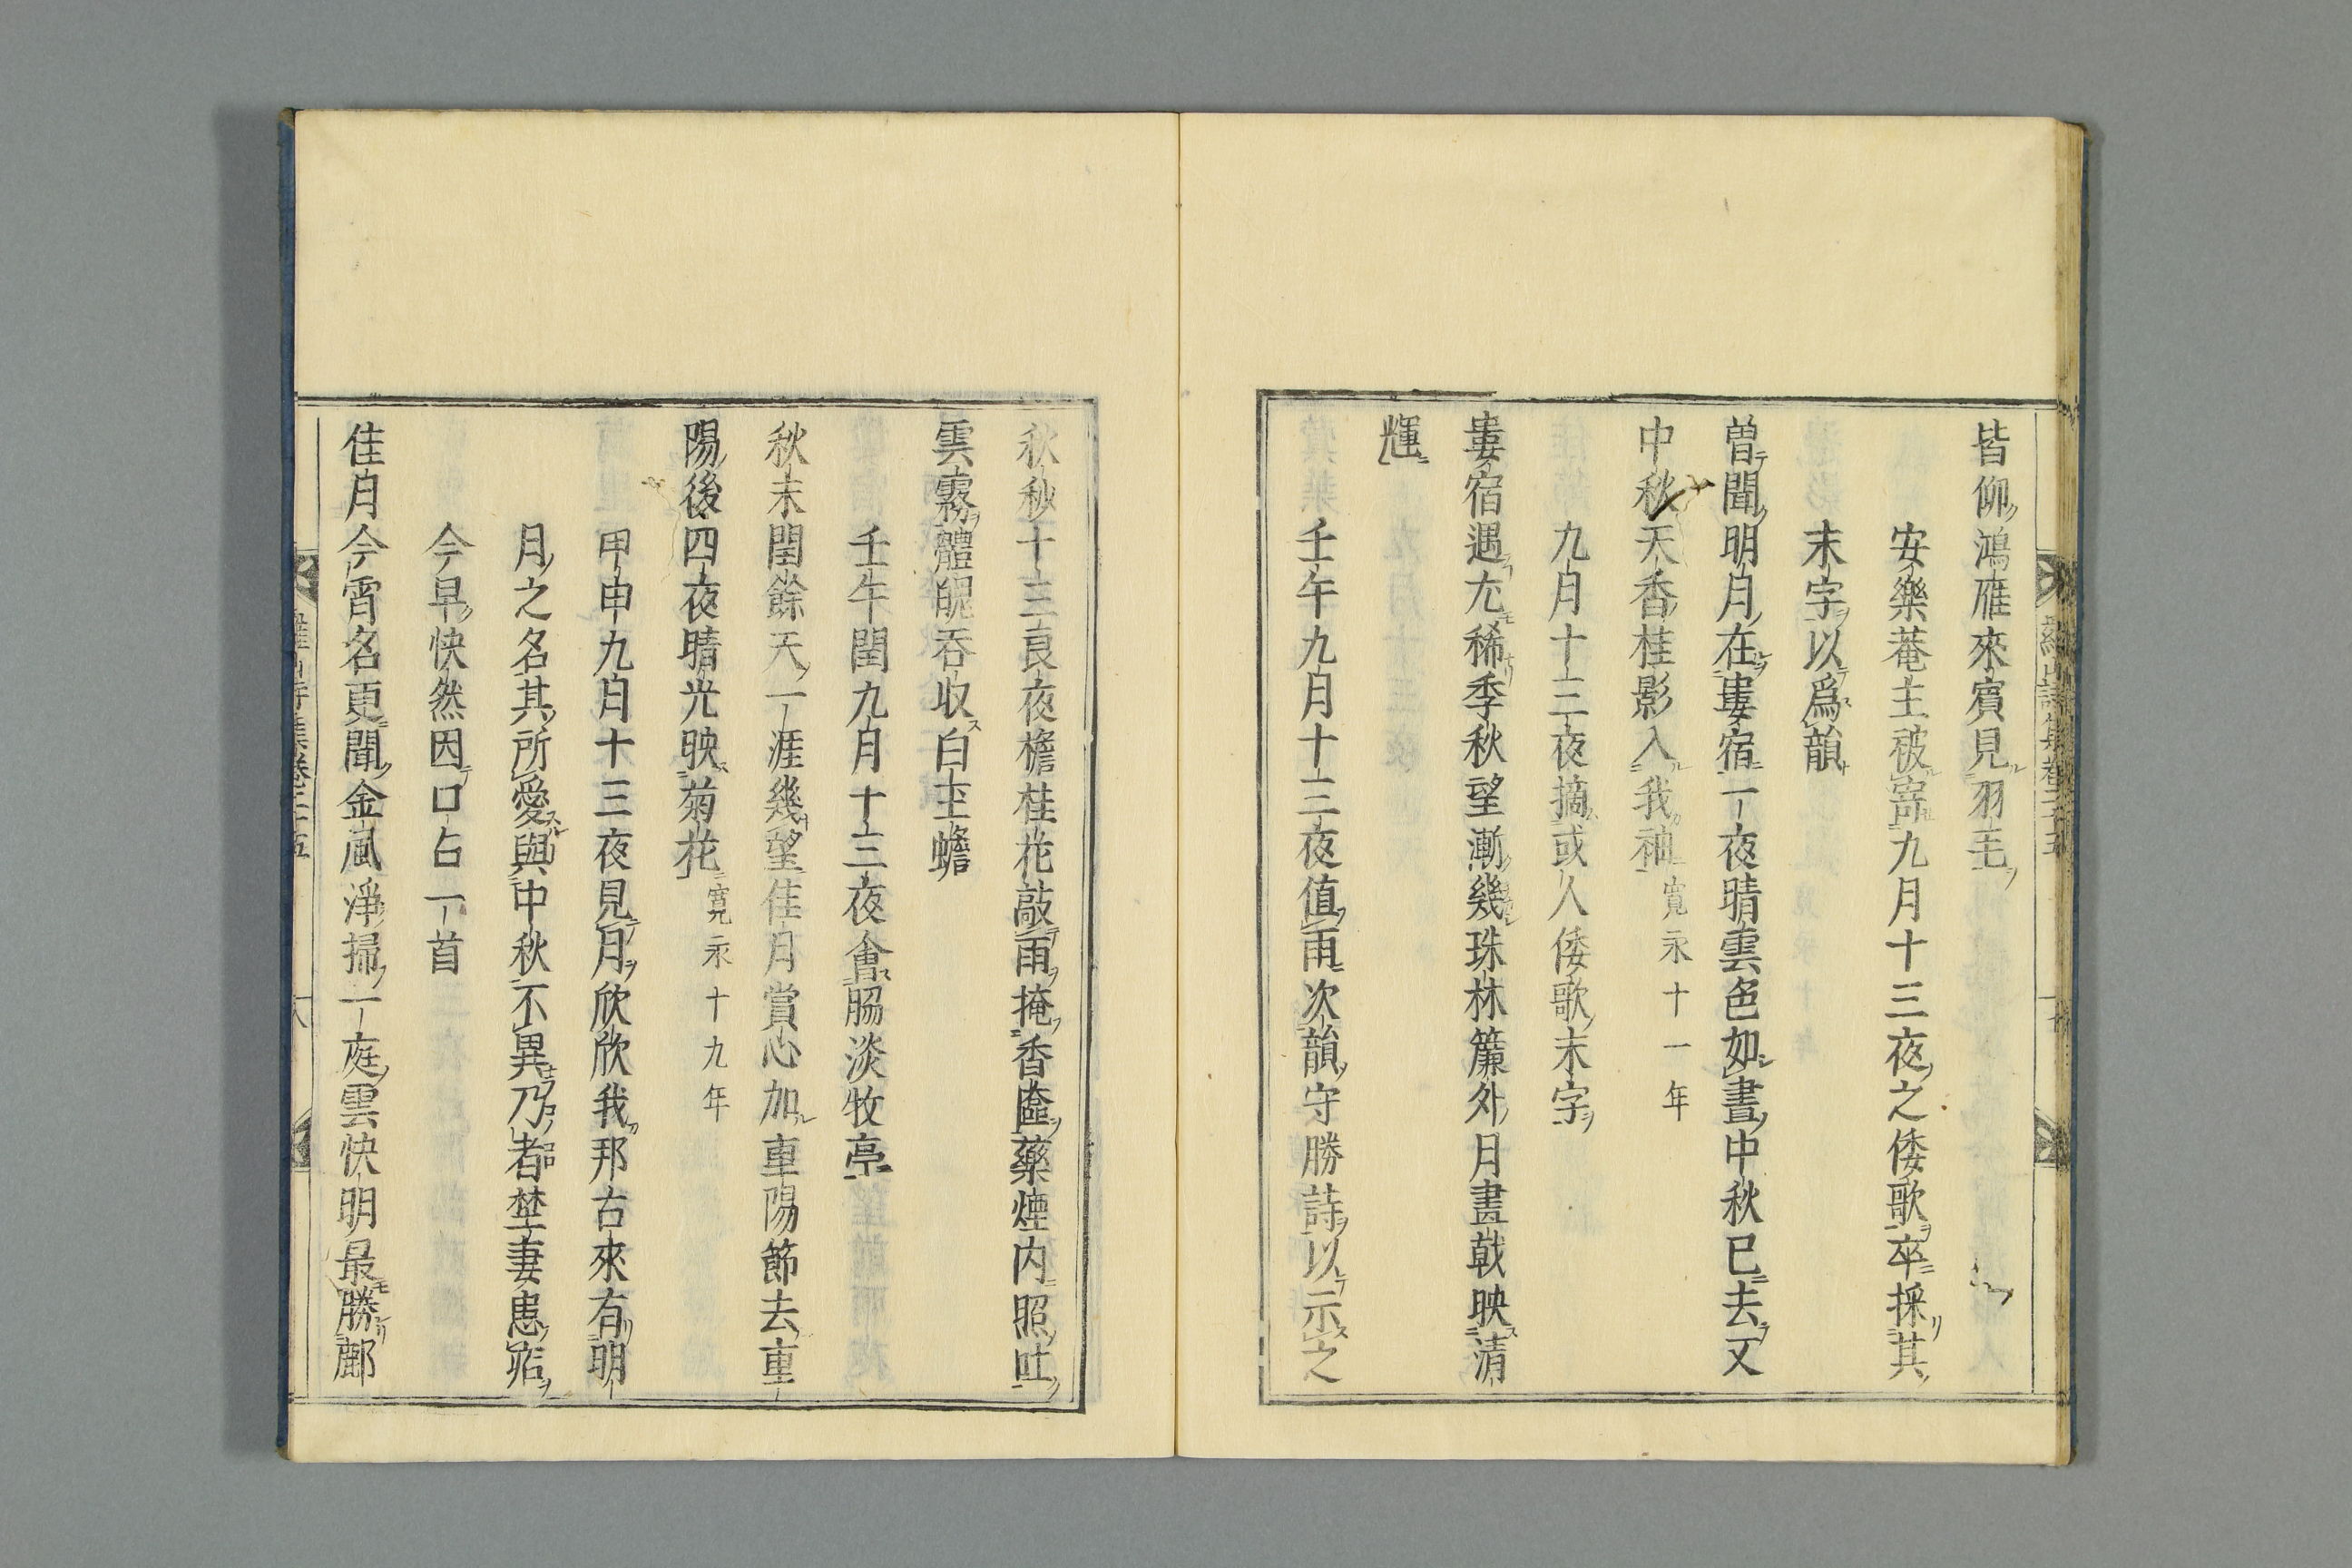 皆仰鴻雁來賓見羽毛
安樂菴主被寄九月十三夜之倭歌卒採其
末字以爲韻
曽聞明月在婁宿一夜晴雲色如晝中秋已去又
中秋天香桂影入我袖寛永十一年
九月十三夜摘或人倭歌末字
婁宿遇尤稀季秋望漸幾珠林簾外月晝戟映清
輝
壬午九月十三夜値雨次韻守勝詩以示之
秋秒十三良夜檐桂花敲雨掩香奩藥煙内照吐
雲霧體魄呑收白玉蟾
壬午閏九月十三夜會脇淡牧亭
秋末閏餘天一涯幾望佳月賞心加車陽節去重
陽後四夜晴光映菊花寛永十九年
甲申九月十三夜見月欣欣我邦古來有明
月之名其所愛與中秋不異乃者埜妻患痁
今早快然因口占一首
佳月今宵名更聞金風淨掃一庭雲快明最勝鄜